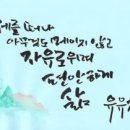 떠나
아무것도 메이지 않고
자유로워
편안하게
삶
유유